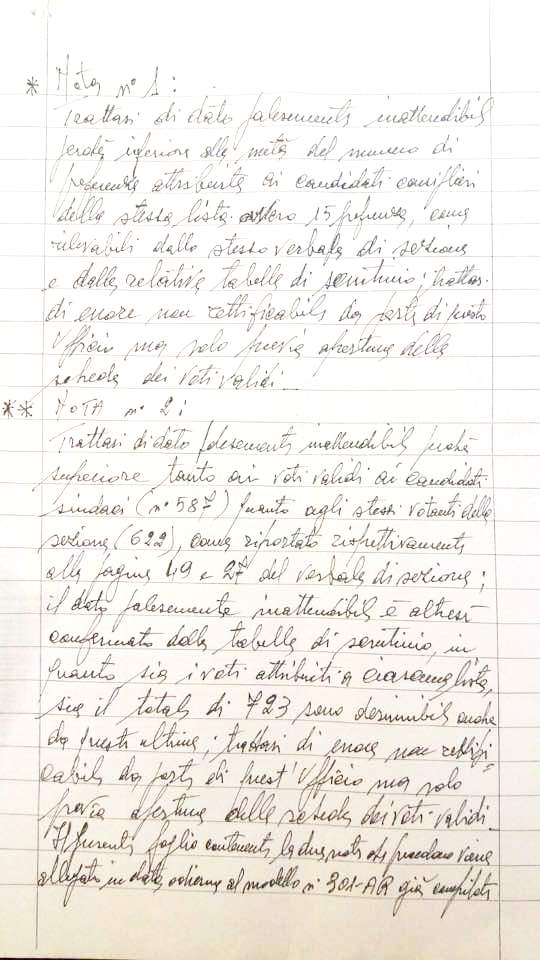 * Nota n° 1:
Trattasi di dato palesemente inattendibile
perché inferiore alla metà del numero di
preferenze attribuite ai candidati consiglieri
della stessa lista ovvero 15 preferenze, come
rilevabili dallo stesso verbale di sezione
e dalle relative tabelle di scrutinio; trattasi
di errore non rettificabile da parte di questo
Ufficio ma solo previa apertura della
scheda dei voti validi_
** NOTA n° 2:
Trattasi di dato palesemente inattendibile perché
superiore tanto ai voti validi ai candidati
sindaci (n° 587) quanto agli stessi votanti della
sezione (622), come riportato rispettivamente
alle pagine 49 e 27 del verbale di sezione;
il dato palesemente inattendibile è altresì
confermato dalla tabella di scrutinio, in
quanto sia i voti attribuiti a ciascuna lista,
sia il totale di 723 sono desumibili anche
da questa ultima; trattasi di errore non rettifi=
cabile da parte di quest'Ufficio ma solo
previa apertura delle schede dei voti validi_
Il presente foglio contenente le due note che precedono viene
allegato in data odierna al modello n° 301-AR già compilato